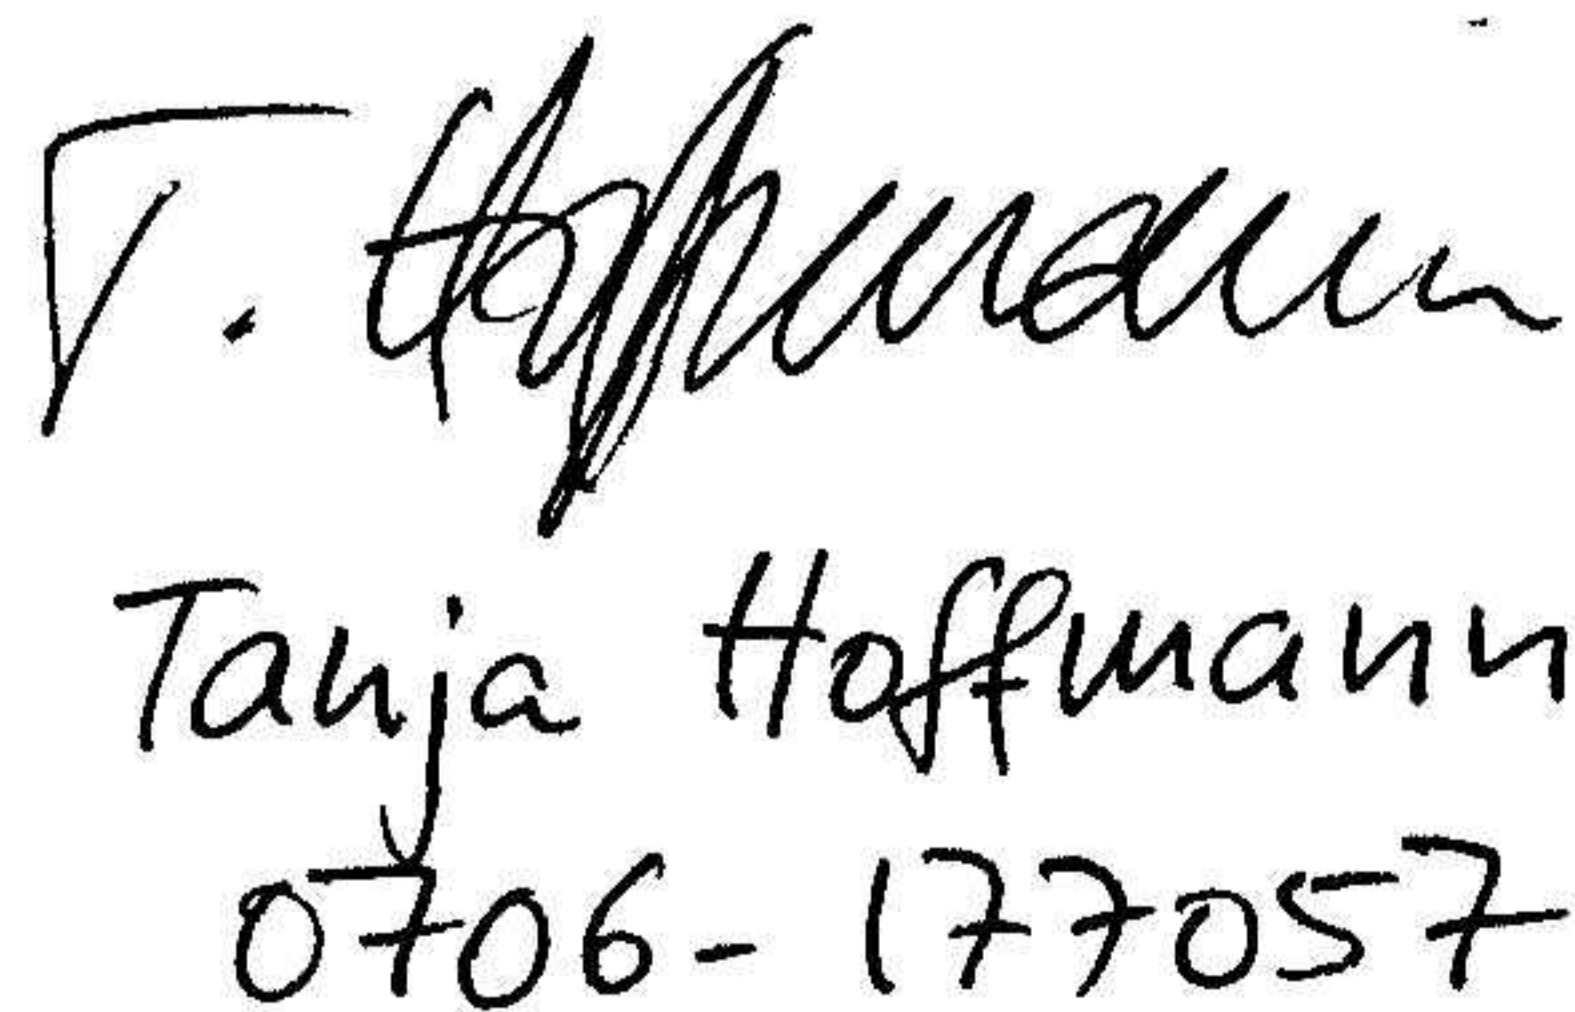 T. Hoffmann
Tanja Hoffmann
0706- 177057